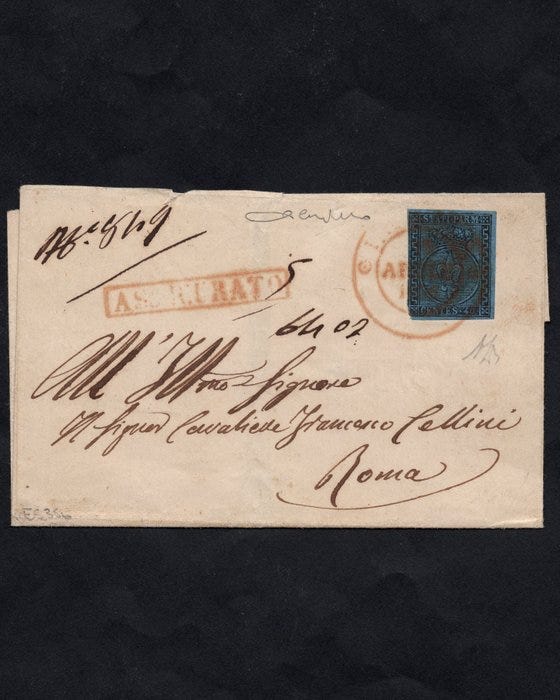 N.º 849
ASSICURATO
5
6407
STATI PARM.
CENTES. 40
All' Illmo Signore
Il Signor Cavaliere Francesco Cellini
Roma